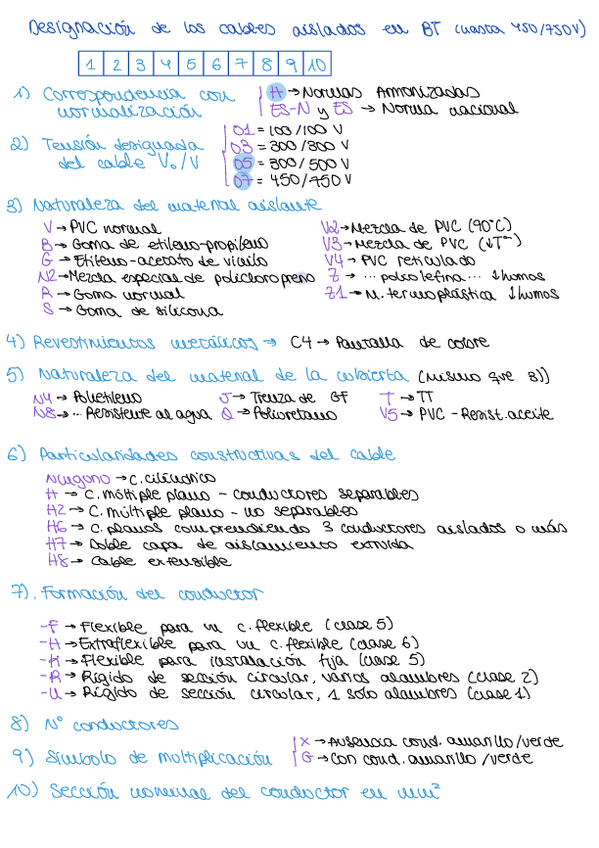 Designación de los cables aislados en BT (hasta 450/750V)
1 2 3 4 5 6 7 8 9 10
1) Correspondencia con normalización
H → Normas Armonizadas
ES-N y ES → Norma nacional
2) Tensión designada del cable V₀/V
01 = 100/100 V
03 = 300/300 V
05 = 300/500 V
07 = 450/750 V
3) Naturaleza del material aislante
V → PVC normal
B → Goma de etileno-propileno
G → Etileno-acetato de vinilo
N2 → Mezcla especial de policloropreno
R → Goma normal
S → Goma de silicona
V2 → Mezcla de PVC (90°C)
V3 → Mezcla de PVC (↓Tª)
V4 → PVC reticulado
Z → ... poliolefina ... ↓humos
Z1 → M. termoplástica ↓humos
4) Revestimientos metálicos → C4 → Pantalla de cobre
5) Naturaleza del material de la cubierta (mismo que 3))
N4 → Polietileno
N8 → ... Resistente al agua
J → Trenza de GF
Q → Poliuretano
T → TT
V5 → PVC - Resist. aceite
6) Particularidades constructivas del cable
Ninguno → C. cilíndrico
H → C. múltiple plano - conductores separables
H2 → C. múltiple plano - no separables
H6 → C. planos comprendiendo 3 conductores aislados o más
H7 → Doble capa de aislamiento extruida
H8 → Cable extensible
7). Formación del conductor
-F → Flexible para un c. flexible (clase 5)
-H → Extraflexible para un c. flexible (clase 6)
-K → Flexible para instalación fija (clase 5)
-R → Rígido de sección circular, varios alambres (clase 2)
-U → Rígido de sección circular, 1 solo alambre (clase 1)
8) Nº conductores
9) Símbolo de multiplicación
X → Ausencia cond. amarillo/verde
G → Con cond. amarillo/verde
10) Sección nominal del conductor en mm²